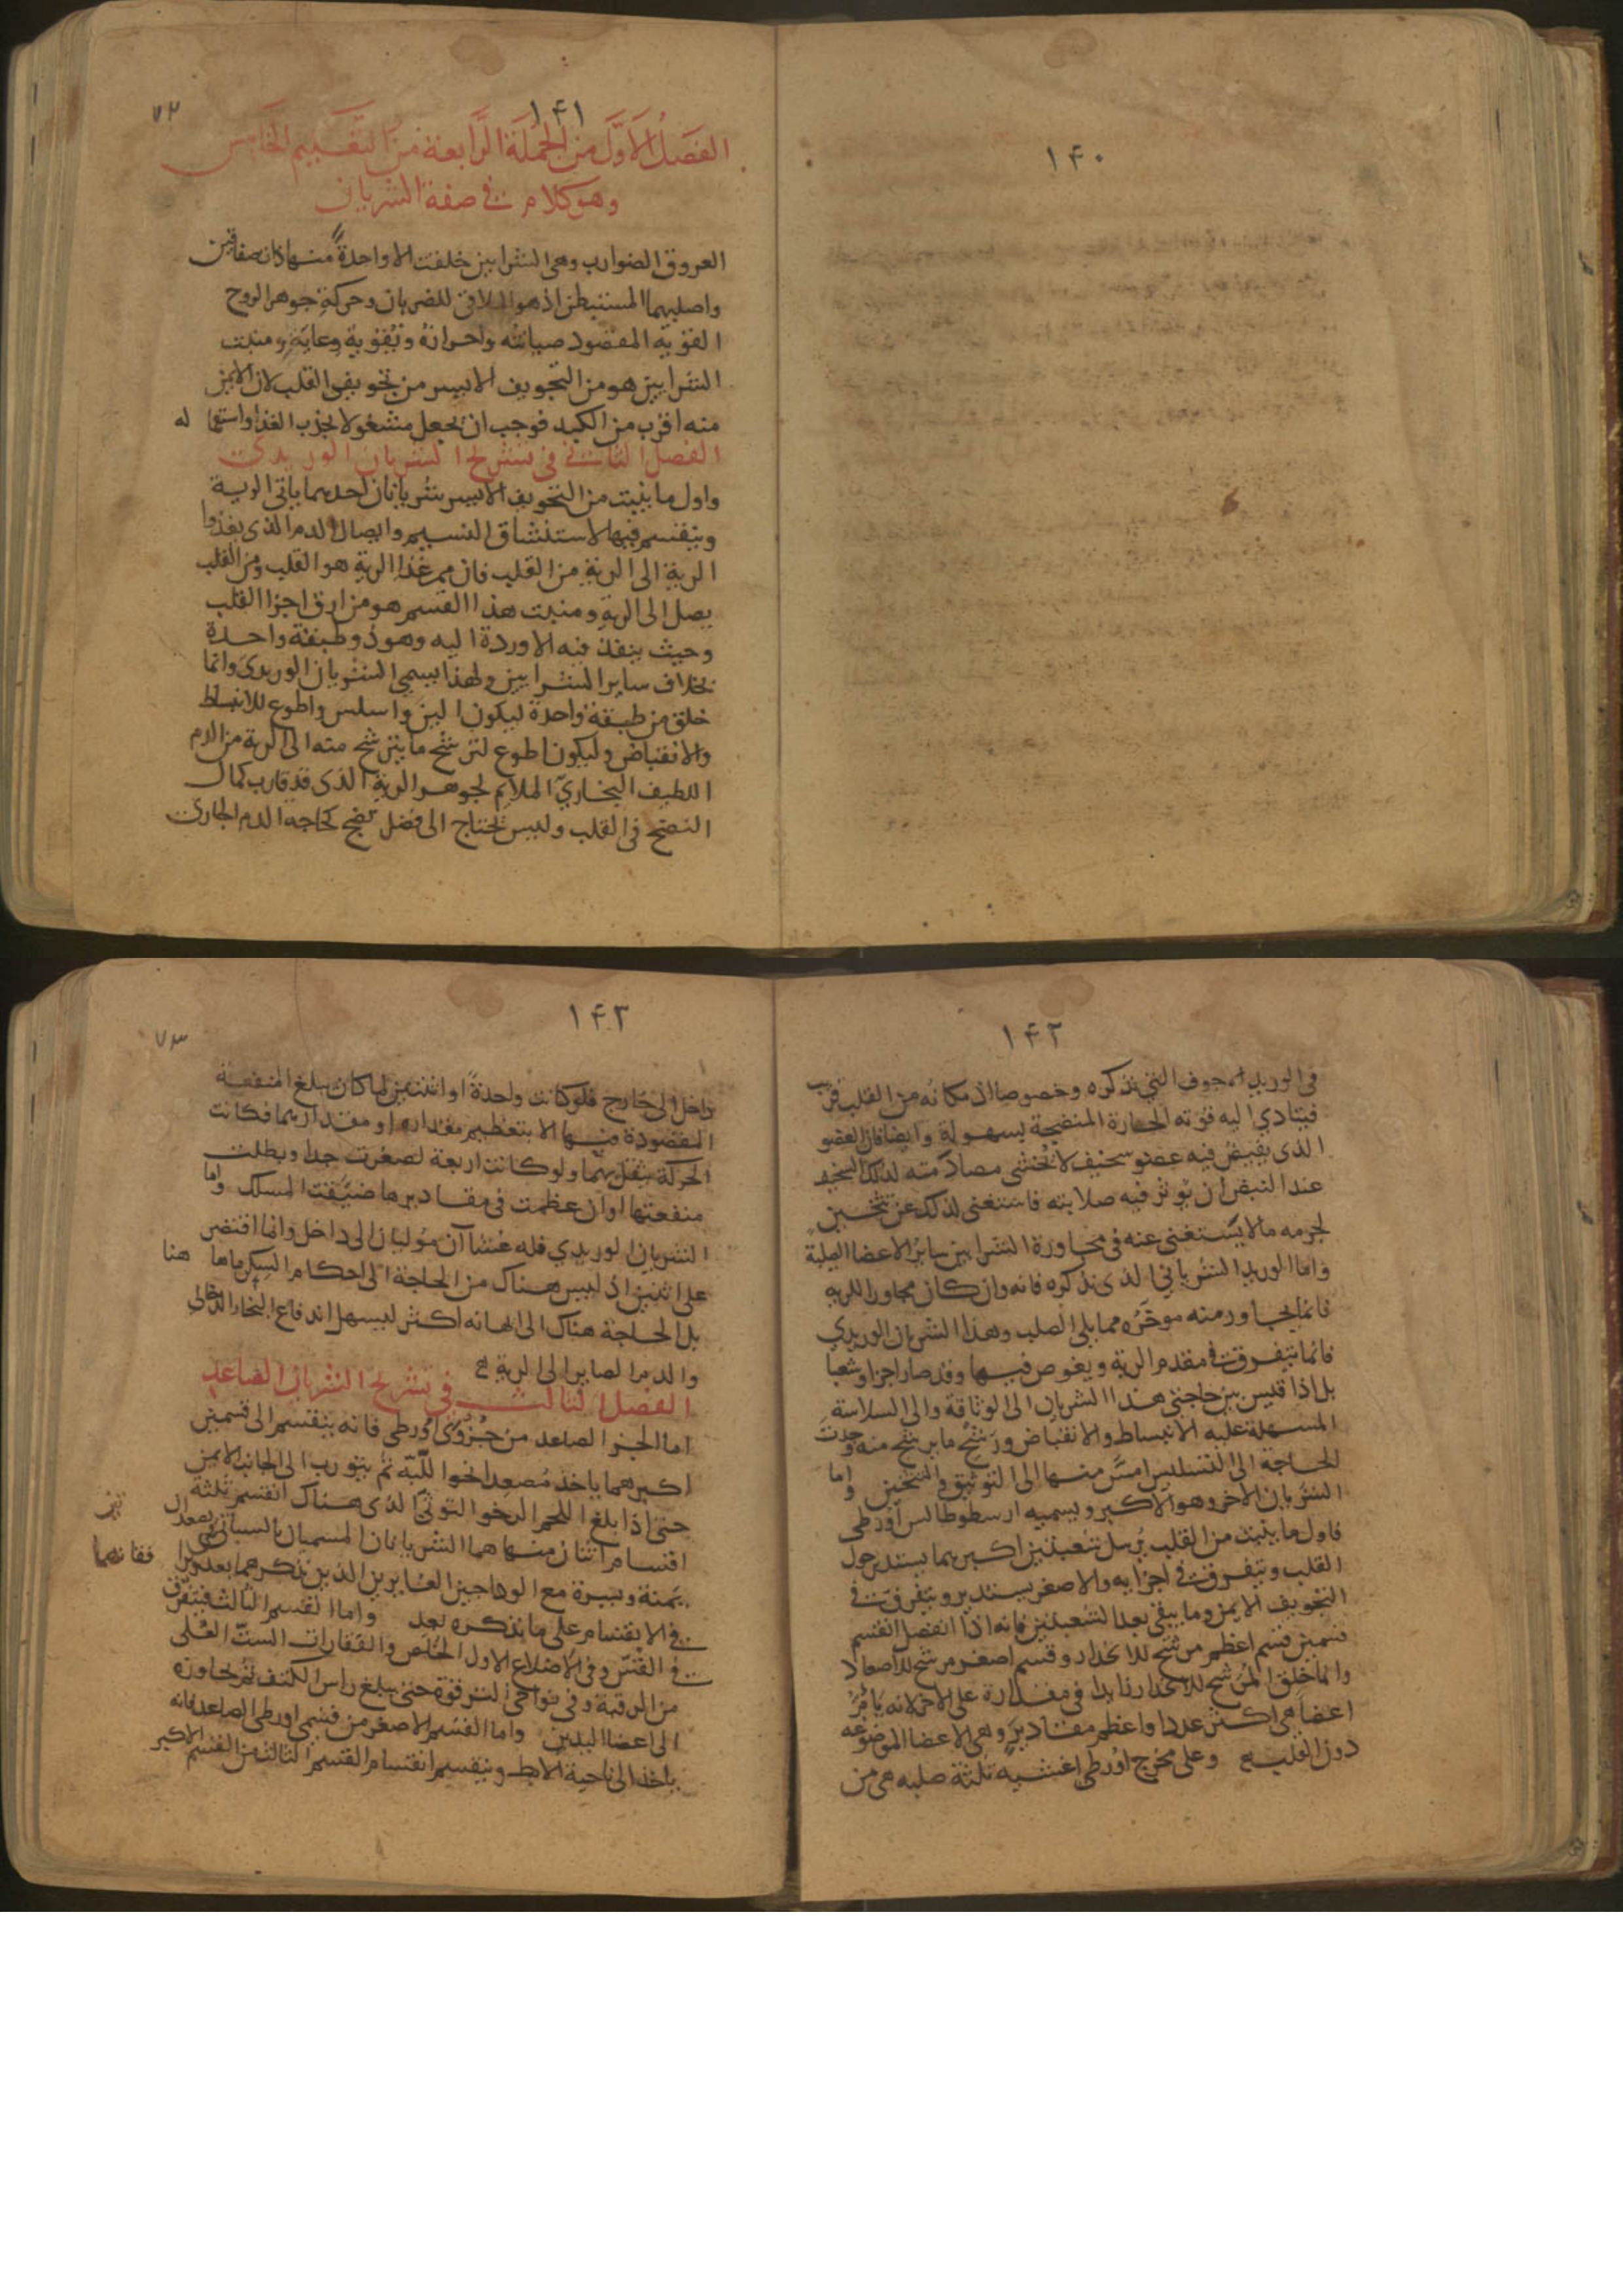 ١۴٠
١۴١
٧٢
الفصل الاول من الجملة الرابعة من التعليم الخامس
وهو كلام في صفة الشريان
العروق الضوارب وهى الشرايين خلقت الا واحدة منها ذات صفاقين
واصلبهما المستبطن اذ هو الملاقى للضربان وحركة جوهر الروح
القوية المقصود صيانته واحرازه وتقوية وعايه ومنبت
الشرايين هو من التجويف الايسر من تجويفى القلب لان الايمن
منه اقرب من الكبد فوجب ان يجعل مشغولا بجذب الغذا واستعما له
الفصل الثانى فى تشريح الشريان الوريدى
واول ما ينبت من التجويف الايسر شريانان احدهما ياتى الرية
وينقسم فيها لاستنشاق النسيم وايصال الدم الذى يغذوا
الرية الى الرية من القلب فان ممر غذا الرية هو القلب ومن القلب
يصل الى الرية ومنبت هذا القسم هو من ارق اجزا القلب
وحيث ينفذ فيه الاوردة اليه وهو ذو طبقة واحدة
بخلاف ساير الشرايين ولهذا يسمى الشريان الوريدى وانما
خلق من طبقة واحدة ليكون الين واسلس واطوع للانبساط
والانقباض وليكون اطوع لترشح ما يترشح منه الى الرية من الدم
اللطيف البخارى الملايم لجوهر الرية الذى قد قارب كمال
النضج فى القلب وليس يحتاج الى فضل نضج كحاجة الدم الجارى
١۴٢
فى الوريد المجوف التى نذكره وخصوصا اذ مكانه من القلب قريب
فيتادي اليه قوته الحارة المنضجة بسهولة وايضا فان العضو
الذى يقبض فيه عضو سخيف لا يخشى مصادمته لذلك السخيف
عند النبض ان يوثر فيه صلابته فاستغنى لذلك عن تثخين
لجرمه مالا يستغنى عنه فى مجاورة الشرايين ساير الاعضا الصلبة
واما الوريد الشريانى الذى نذكره فانه وان كان مجاورا للرية
فانما يجاور منه موخره مما يلى الصلب وهذا الشريان الوريدي
فانما يتفرق فى مقدم الرية ويغوص فيها وقد صار اجزا وشعبا
بل اذا قيس بين حاجتى هذا الشريان الى الوثاقة والى السلاسة
المسهلة عليه الانبساط والانقباض ورشح ما يرشح منه وجدت
الحاجة الى التسليس امس منها الى التوثيق والتثخين واما
الشريان الاخر وهو الاكبر ويسميه ارسطوطالس اورطى
فاول ما ينبت من القلب يرسل شعبتين اكبرهما يستدير حول
القلب ويتفرق فى اجزايه والاصغر يستدير ويتفرق فى
التجويف الايمن وما يبقى بعد الشعبتين فانه اذا انفصل انقسم
قسمين قسم اعظم مرشح للانحدار وقسم اصغر مرشح للاصعاد
وانما خلق المرشح للانحدار زايدا فى مقداره على الاخر لانه يا مر
اعضا هى اكثر عددا واعظم مقادير وهى الاعضا الموضوعه
دون القلب وعلى مخرج اورطى اغشيه ثلثة صلبه هى من
١۴٣
٧٣
داخل الى خارج فلو كانت واحدة او اثنتين لما كان يبلغ المنفعة
المقصودة منها الا بتعظيم مقدارها او مقداريهما فكانت
الحركة تثقل بهما ولو كانت اربعة لصغرت جدا وبطلت
منفعتها او ان عظمت فى مقاديرها ضيقت المسلك واما
الشريان الوريدي فله غشاآن موليان الى داخل وانما اقتصر
على اثنين اذ ليس هناك من الحاجة الى احكام السكر ماها هنا
بل الحاجة هناك الى السلاسة اكثر ليسهل اندفاع البخار الدخانى
والدم الصاير الى الرية
الفصل الثالث فى تشريح الشريان الصاعد
اما الجز الصاعد من جزوى اورطى فانه ينقسم الى قسمين
اكبرهما ياخذ مصعدا نحوا للبه ثم يتورب الى الجانب الايمن
حتى اذا بلغ اللحم الرخو التوثى الذى هناك انقسم ثلثة
اقسام اثنان منها هما الشريانان المسميان بالسباتيين
يمنة ويسرة مع الوداجين الغايرين الذين نذكرهما بعد فيرافقانهما
فى الانقسام على ما نذكره بعد واما القسم الثالث فيتفرق
فى القس وفى الاضلاع الاول الخلص والفقارات الست العلى
من الرقبة وفى نواحى الترقوة حتى يبلغ راس الكتف ثم يجاوزه
الى اعضا اليدين واما القسم الاصغر من قسمى اورطى الصاعد فانه
ياخذ الى ناحية الابط وينقسم انقسام القسم الثالث من القسم الاكبر